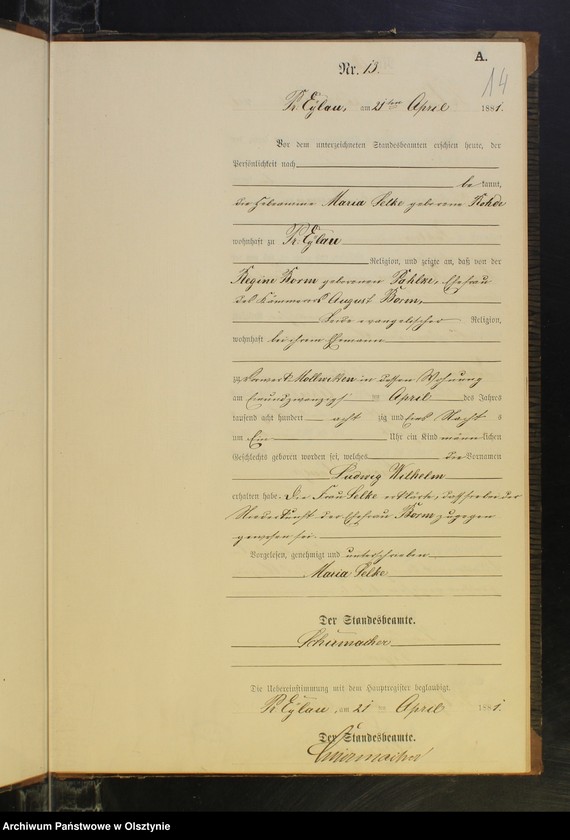 A.
14
Nr. 13.
Pr. Eylau, am 21ten April 1881.
Vor dem unterzeichneten Standesbeamten erschien heute, der
Persönlichkeit nach
be kannt,
die Hebeamme Maria Selke geborene Rohde
wohnhaft zu Pr. Eylau
Religion, und zeigte an, daß von der
Regine Borm geborenen Pahlke, Ehefrau
des Kämmerers August Borm,
beide evangelischer Religion,
wohnhaft bei ihrem Ehemann
zu Vorwerk Mollwitten in dessen Wohnung
am April des Jahres
tausend acht hundert acht zig und eins Nachts
um Ein Uhr ein Kind männlichen
Geschlechts geboren worden sei, welches die Vornamen
Ludwig Wilhelm
erhalten habe. Die Frau Selke erklärte, daß sie bei der
Niederkunft der Ehefrau Borm zugegen
gewesen sei.
Vorgelesen, genehmigt und unterschrieben
Maria Selke
Der Standesbeamte.
Schirmacher
Die Uebereinstimmung mit dem Hauptregister beglaubigt.
Pr. Eylau, am 21 ten April 1881.
Der Standesbeamte.
Schirmacher
Archiwum Państwowe w Olsztynie